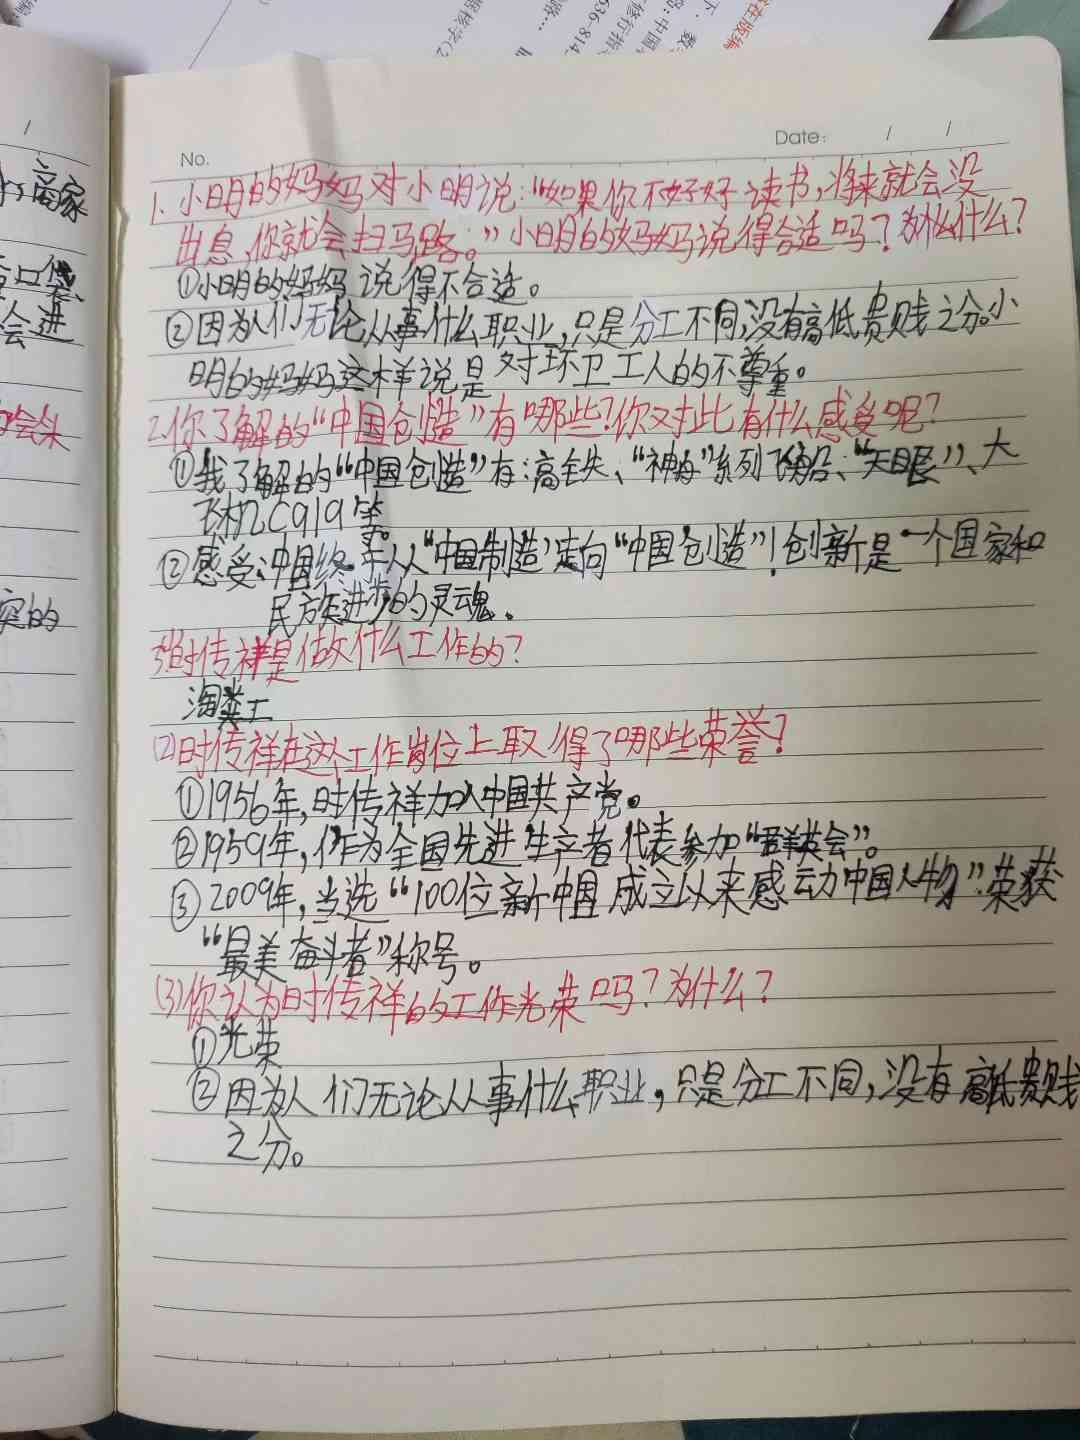 No.
Date: / /
1. 小明的妈妈对小明说:“如果你不好好读书,将来就会没
出息,你就会扫马路。”小明的妈妈说得合适吗?为什么?
①小明的妈妈说得不合适。
②因为人们无论从事什么职业,只是分工不同,没有高低贵贱之分。小
明的妈妈这样说是对环卫工人的不尊重。
2.你了解的“中国创造”有哪些?你对此有什么感受呢?
①我了解的“中国创造”有:高铁、“神舟”系列飞船、“天眼”、大
飞机C919等。
②感受:中国终于从“中国制造”走向“中国创造”!创新是一个国家和
民族进步的灵魂。
3.时传祥是做什么工作的?
淘粪工
(2)时传祥在这个工作岗位上取得了哪些荣誉?
①1956年,时传祥加入中国共产党。
②1959年,作为全国先进生产者代表参加“群英会”。
③2009年,当选“100位新中国成立以来感动中国人物”荣获
“最美奋斗者”称号。
(3)你认为时传祥的工作光荣吗?为什么?
①光荣
②因为人们无论从事什么职业,只是分工不同,没有高低贵贱
之分。